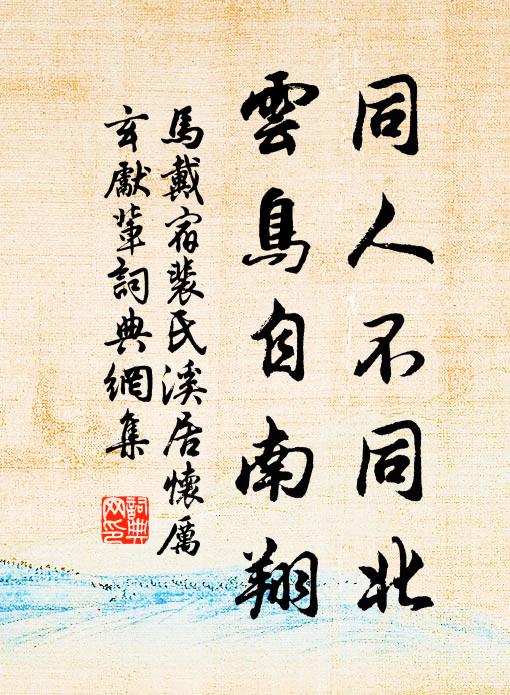 同人不同北
雲鳥自南翔
馬戴宿裴氏溪居懷厲
玄獻輦詞典網集
詞典
网印